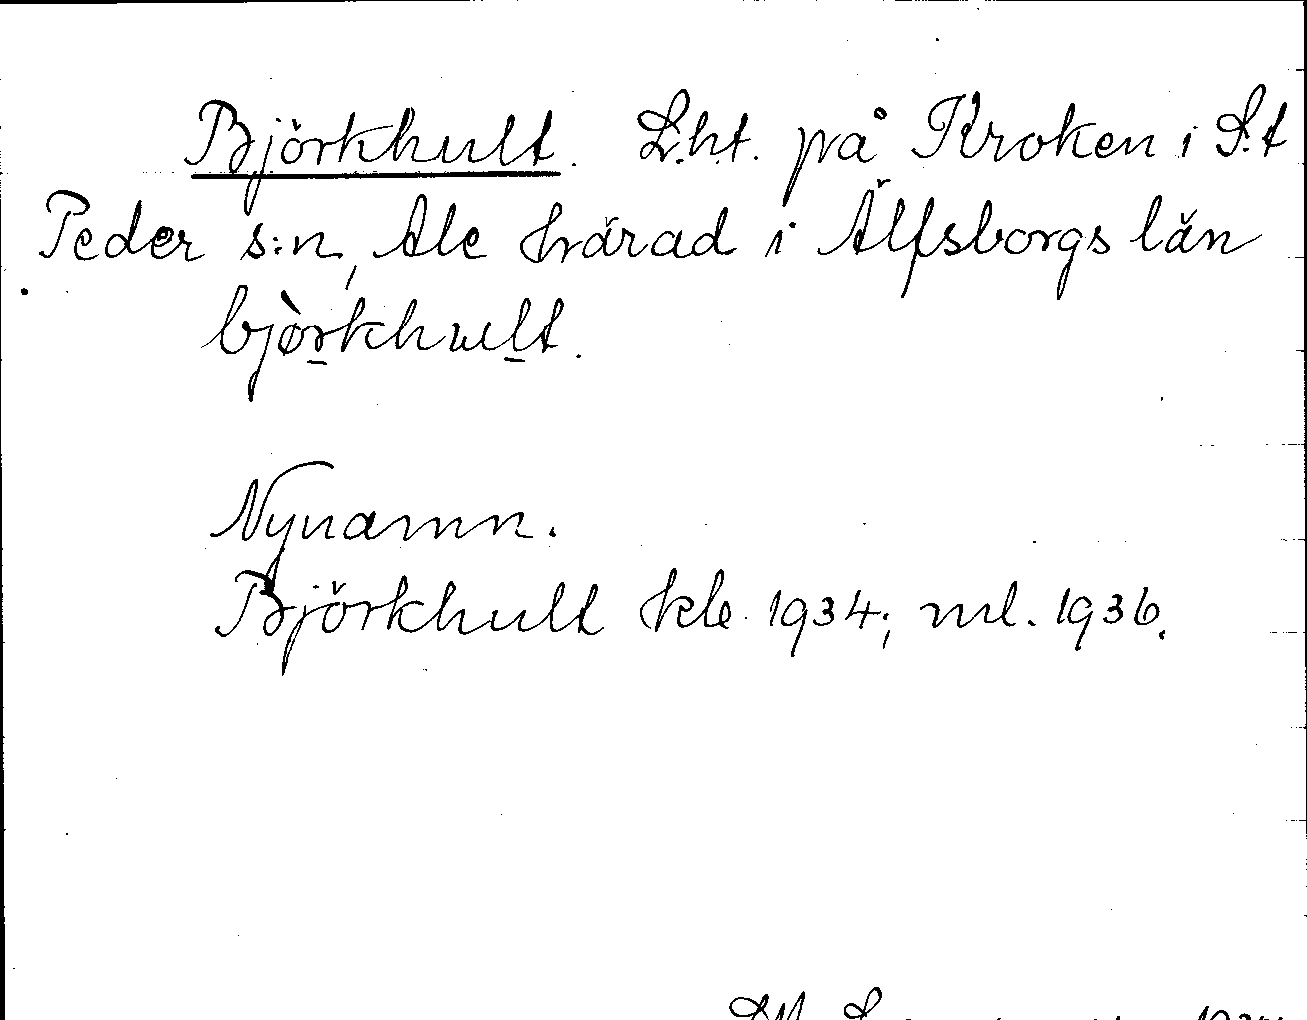 Björkhult. L.h.t. på Kroken i S:t
Peder s:n, Ale härad i Älfsborgs län
bjòrkhult.
Nynamn.
Björkhult kb 1934; ml. 1936.